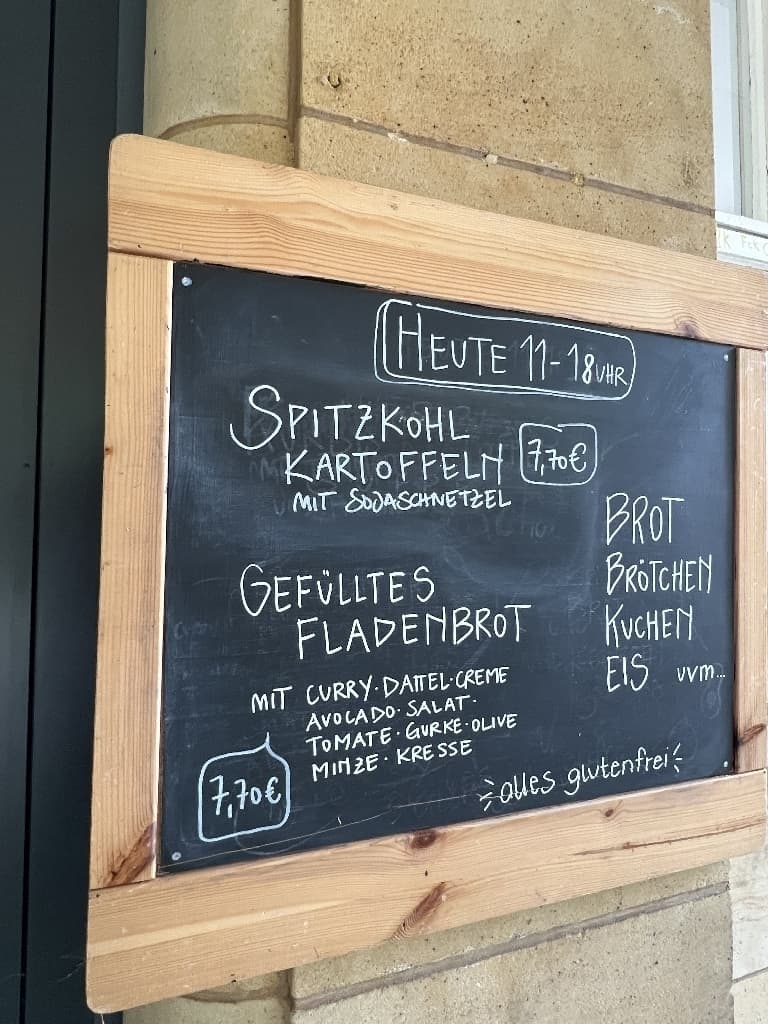 HEUTE 11-18 UHR
SPITZKOHL
KARTOFFELN
7,70€
MIT SOJASCHNETZEL
GEFÜLLTES
FLADENBROT
MIT CURRY·DATTEL·CREME
AVOCADO·SALAT·
TOMATE·GURKE·OLIVE
MINZE·KRESSE
7,70€
BROT
BRÖTCHEN
KUCHEN
EIS uvm...
alles glutenfrei